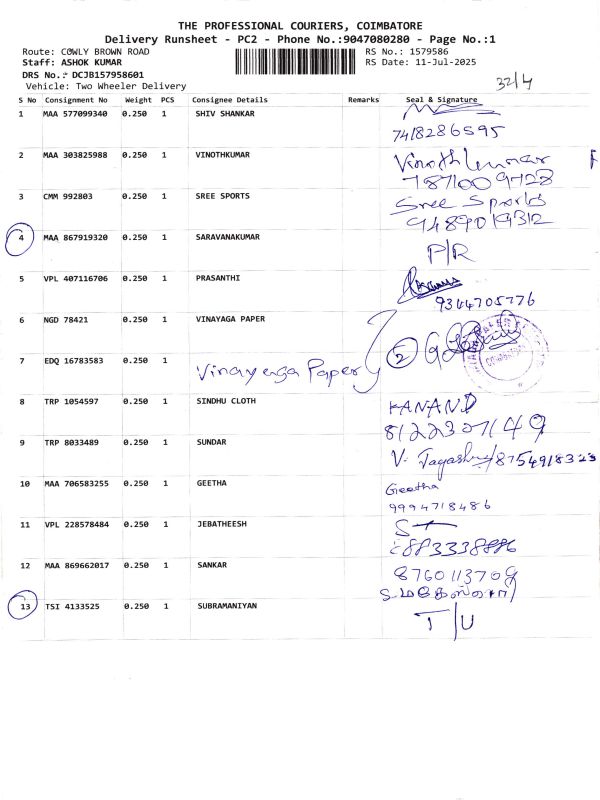 THE PROFESSIONAL COURIERS, COIMBATORE
Delivery Runsheet - PC2 - Phone No.:9047080280 - Page No.:1
Route: COWLY BROWN ROAD RS No.: 1579586
Staff: ASHOK KUMAR RS Date: 11-Jul-2025
DRS No.: DCJB157958601
Vehicle: Two Wheeler Delivery 32/4
S No Consignment No Weight PCS Consignee Details Remarks Seal & Signature
1 MAA 577099340 0.250 1 SHIV SHANKAR
7418286595
2 MAA 303825988 0.250 1 VINOTHKUMAR Vinothkumar
7871009728
3 CMM 992803 0.250 1 SREE SPORTS Sree Sports
9489019312
4 MAA 867919320 0.250 1 SARAVANAKUMAR P/R
5 VPL 407116706 0.250 1 PRASANTHI
9344705776
6 NGD 78421 0.250 1 VINAYAGA PAPER
7 EDQ 16783583 0.250 1 Vinayaga Paper 2
8 TRP 1054597 0.250 1 SINDHU CLOTH KANAND
8122307149
9 TRP 8033489 0.250 1 SUNDAR V. Jayashry/8754918323
10 MAA 706583255 0.250 1 GEETHA Geetha
9994718486
11 VPL 228578484 0.250 1 JEBATHEESH
8883338886
12 MAA 869662017 0.250 1 SANKAR 8760113709
13 TSI 4133525 0.250 1 SUBRAMANIYAN T/U